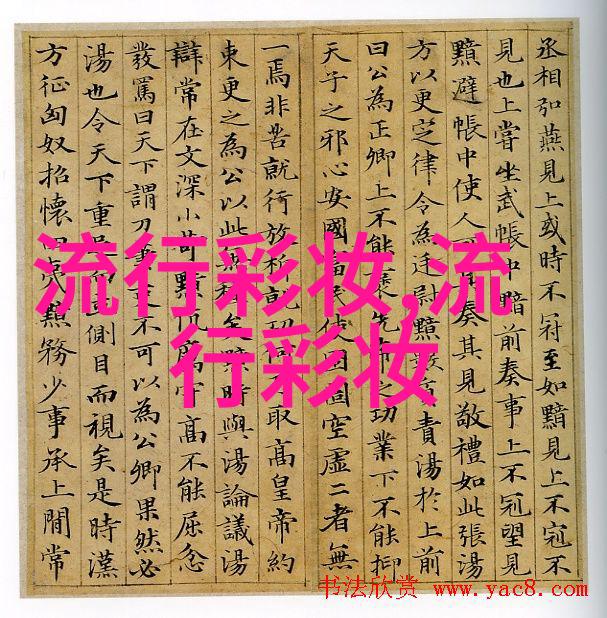 丞相弘燕見上或時不冠至如黯見上不冠不
見也上嘗坐武帳中黯前奏事上不冠望見
黯避帳中使人奏其見敬禮如此張湯
方以更定律令為廷尉黯數責湯於上前
曰公為正卿上不能襃先帝之功業下不能抑
天子之邪心安國富民使囹圄空虛二者無
一焉非苦就行放析就功取高皇帝約
束更之為公以此無種矣黯時與湯論議湯
辯常在文深小苛黯伉厲守高不能屈忿
發罵曰天下謂刀筆吏不可以為公卿果然必
湯也令天下重足側目而視矣是時漢
方征匈奴招懷四夷黯務少事承上間常
流行彩妆,流
行彩妆
书法欣赏 www.yac8.com